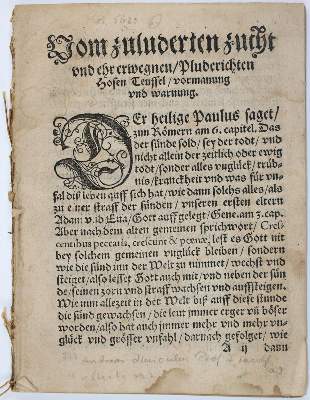 Vom zuluderten zucht
vnd ehr erwegnen / Pluderichten
Hosen Teuffel / vormanung
vnd warnung.
DEr heilige Paulus saget /
zun Römern am 6. capitel. Das
der sünde sold / sey der todt / vnd
nicht allein der zeitlich oder ewig
todt / sonder alles vnglück / trüb-
nis / kranckheit vnd was für vn-
fal diß leben auff sich hat / wie dann solchs alles / als
zu einer straff der sünden / vnseren ersten eltern
Adam vnd Eua / Gott auff gelegt / Gene. am 3. cap.
Aber nach dem alten gemeinen sprichwort / Cres-
centibus peccatis, crescunt & pœnæ, lest es Gott nit
bey solchem gemeinen vnglück bleiben / sondern
wie die sünd inn der Welt zu nimmet / wechst vnd
steiget / also lesset Gott auch mit / vnd neben der sün
de / seinen zorn vnd straff wachsen vnd auffsteigen.
Wie nun allezeit in der Welt biß auff diese stunde
die sünd gewachsen / die leut jmmer erger vñ böser
worden / also hat auch jmmer mehr vnd mehr vn-
glück vnd grösser vnfahl / darnach gefolget / wie
A ij dann